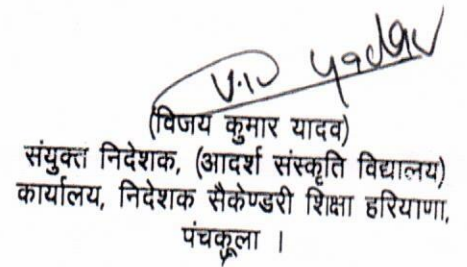 V.K Yadav
(विजय कुमार यादव)
संयुक्त निदेशक, (आदर्श संस्कृति विद्यालय)
कार्यालय, निदेशक सैकेण्डरी शिक्षा हरियाणा,
पंचकूला ।